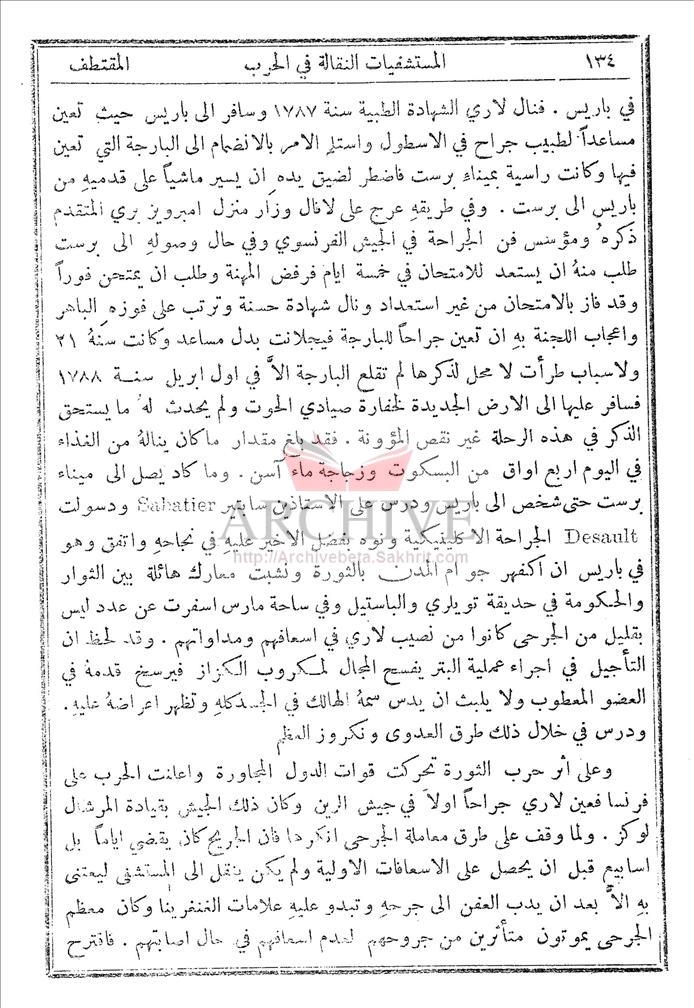 ١٣٤ المستشفيات النقالة في الحرب المقتطف
في باريس . فنال لاري الشهادة الطبية سنة ١٧٨٧ وسافر الى باريس حيث تعين
مساعداً لطبيب جراح في الاسطول واستلم الامر بالانضمام الى البارجة التي تعين
فيها وكانت راسية بميناء برست فاضطر لضيق يده ان يسير ماشياً على قدميه من
باريس الى برست . وفي طريقه عرج على لافال وزار منزل امبرويز بري المتقدم
ذكره ومؤسس فن الجراحة في الجيش الفرنسوي وفي حال وصوله الى برست
طلب منه ان يستعد للامتحان في خمسة ايام فرفض المهنة وطلب ان يمتحن فوراً
وقد فاز بالامتحان من غير استعداد ونال شهادة حسنة وترتب على فوزه الباهر
واعجاب اللجنة به ان تعين جراحاً للبارجة فيجلانت بدل مساعد وكانت سنه ٢١
ولاسباب طرأت لا محل لذكرها لم تقلع البارجة الاَّ في اول ابريل سنة ١٧٨٨
فسافر عليها الى الارض الجديدة لخفارة صيادي الحوت ولم يحدث له ما يستحق
الذكر في هذه الرحلة غير نقص المؤونة . فقد بلغ مقدار ما كان يناله من الغذاء
في اليوم اربع اواق من البسكوت وزجاجة ماء آسن . وما كاد يصل الى ميناء
برست حتى شخص الى باريس ودرس على الاستاذين سابتير Sabatier ودسولت
Desault الجراحة الاكلينيكية ونوه بفضل الاخير عليه في نجاحه واتفق وهو
ARCHIVE
http://Archivebeta.Sakhrit.com
في باريس ان اكفهر جو ام المدن بالثورة ونشبت معارك هائلة بين الثوار
والحكومة في حديقة تويلري والباستيل وفي ساحة مارس اسفرت عن عدد ليس
بقليل من الجرحى كانوا من نصيب لاري في اسعافهم ومداواتهم . وقد لحظ ان
التأجيل في اجراء عملية البتر يفسح المجال لمكروب الكزاز فيرسخ قدمه في
العضو المعطوب ولا يلبث ان يدس سمه الهالك في الجسد كله وتظهر اعراضه عليه .
ودرس في خلال ذلك طرق العدوى ونكروز العظم
وعلى أثر حرب الثورة تحركت قوات الدول المجاورة واعلنت الحرب على
فرنسا فعين لاري جراحاً اولاً في جيش الرين وكان ذلك الجيش بقيادة المرشال
لوكنر . ولما وقف على طرق معاملة الجرحى انكرها فان الجريح كان يقضي اياماً بل
اسابيع قبل ان يحصل على الاسعافات الاولية ولم يكن ينقل الى المستشفى ليعتنى
به الاَّ بعد ان يدب العفن الى جرحه وتبدو عليه علامات الغنغرينا وكان معظم
الجرحى يموتون متأثرين من جروحهم لعدم اسعافهم في حال اصابتهم . فاقترح